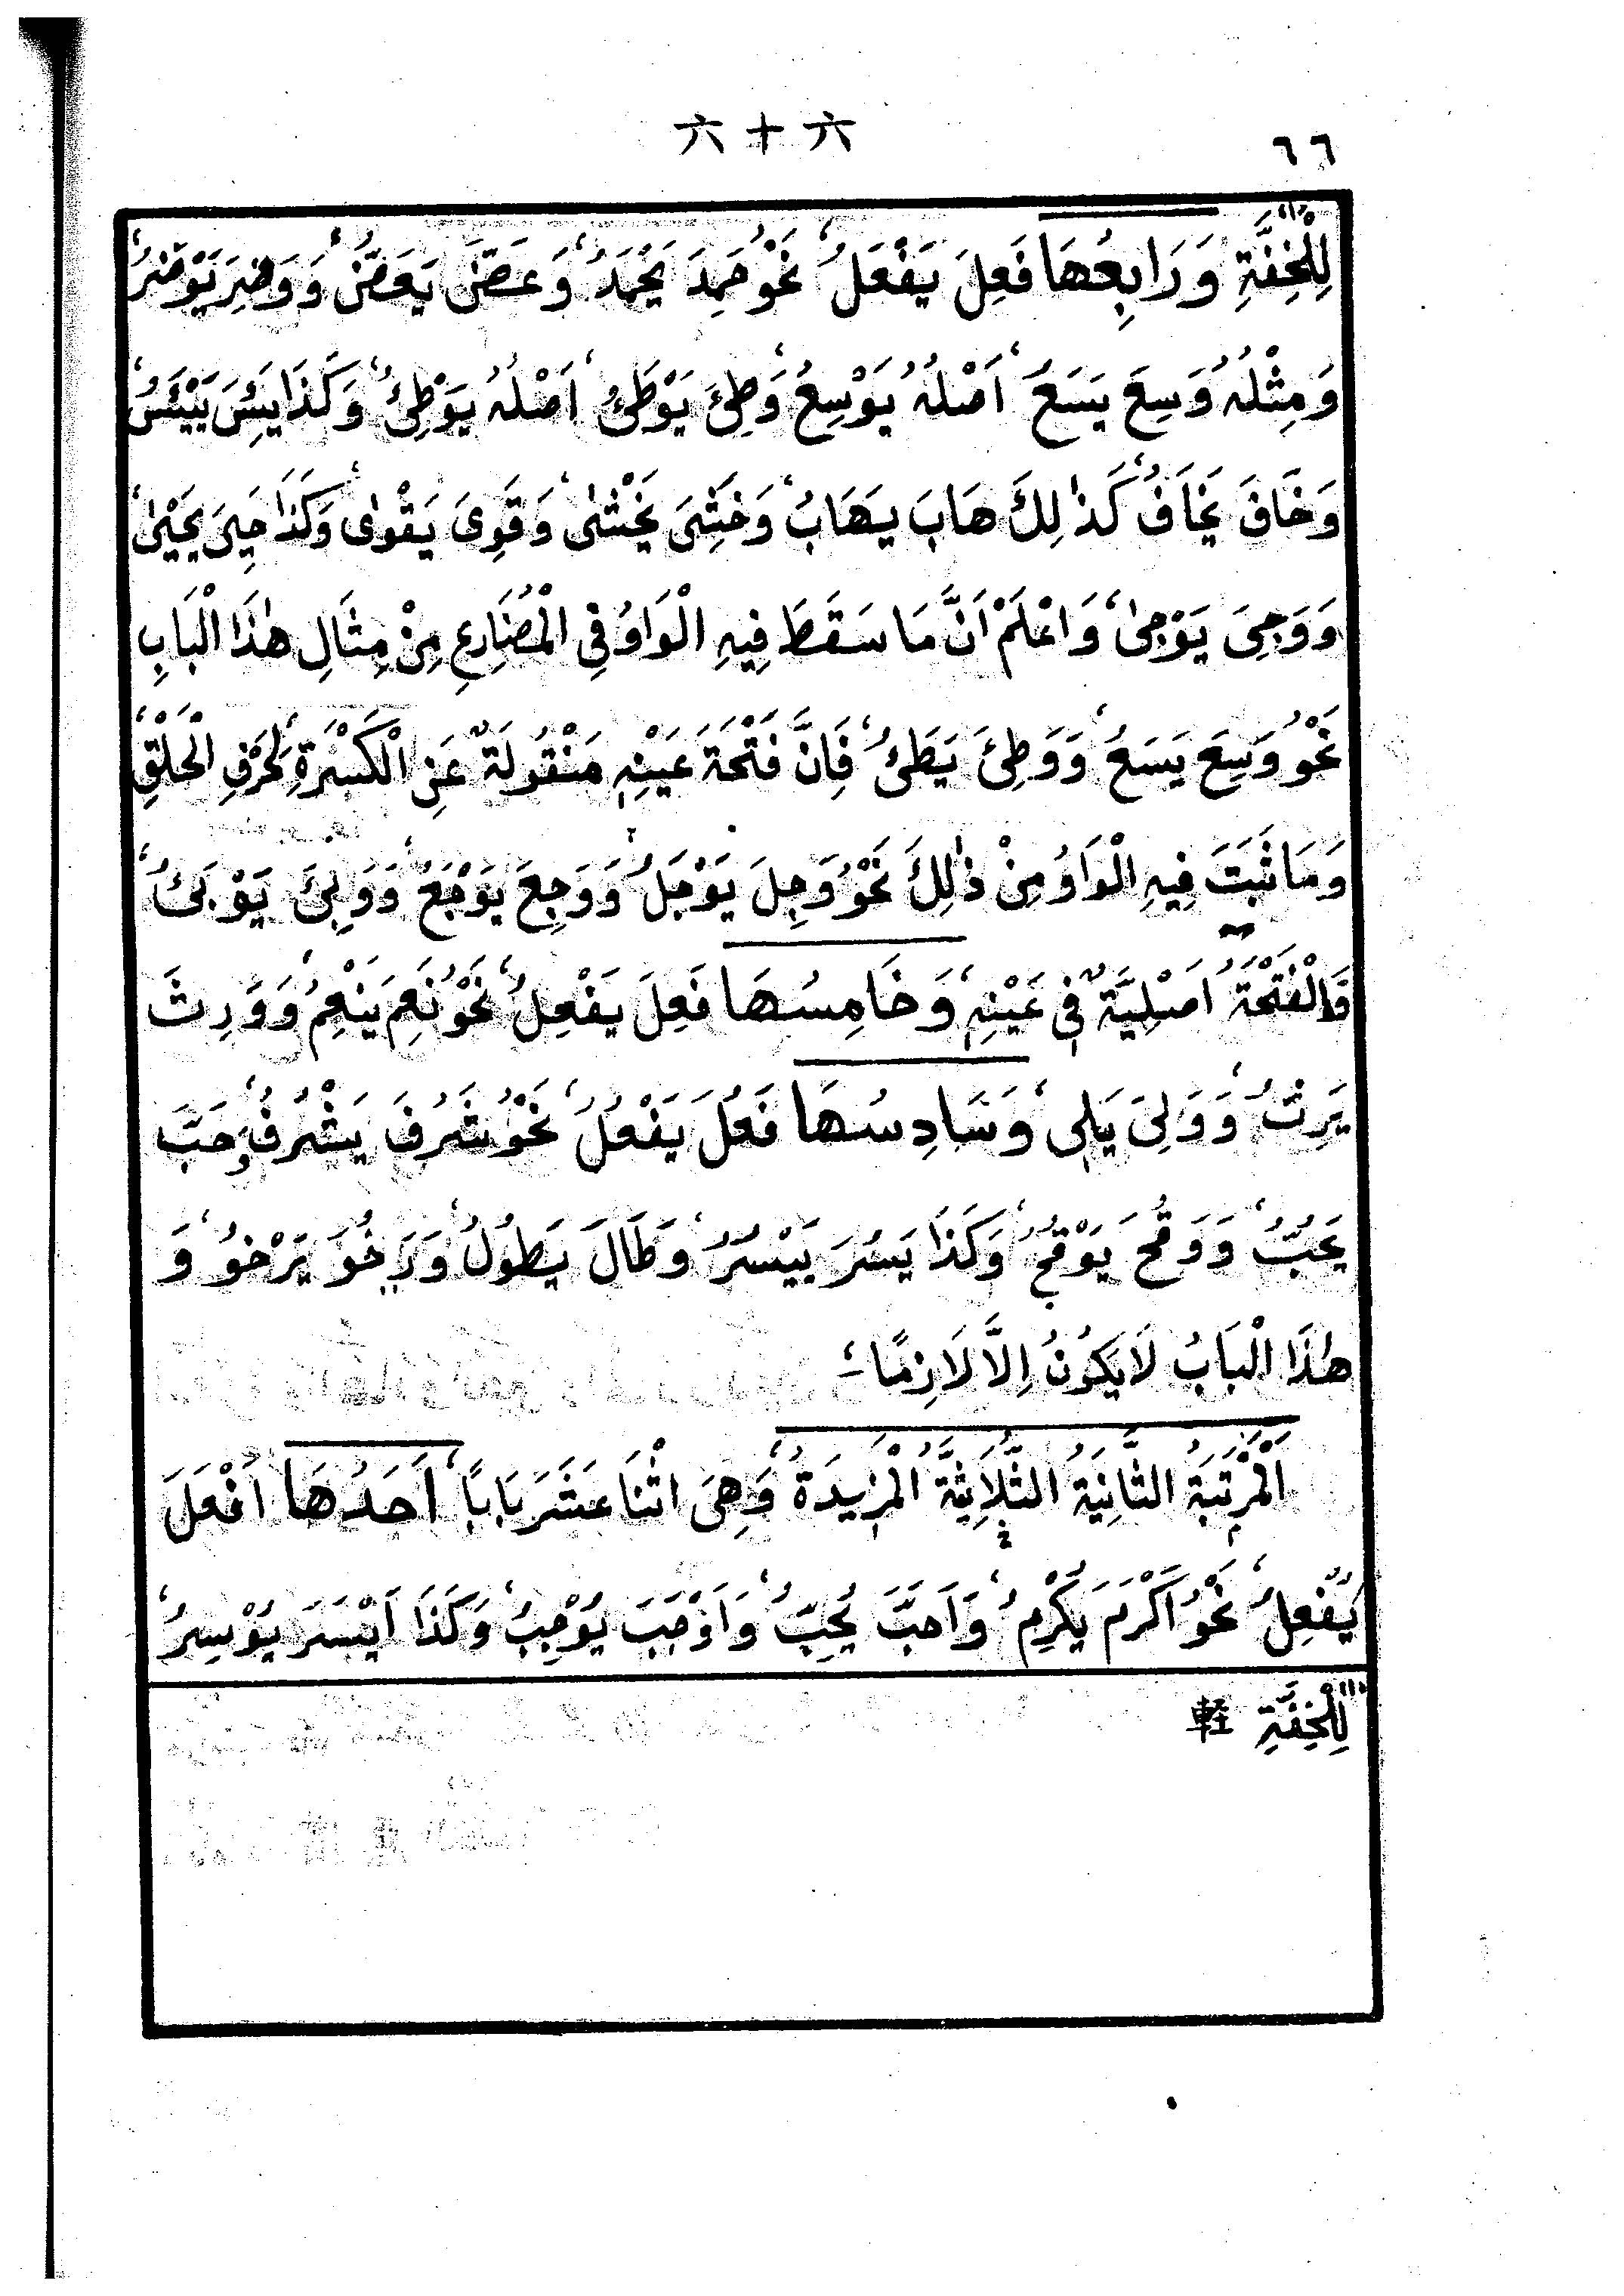 六十六
٦٦
لِلْخِفَّةِ ⁽¹⁾ وَرَابِعُهَا فَعِلَ يَفْعَلُ، نَحْوُ حَمِدَ يَحْمَدُ، وَعَضَّ يَعَضُّ، وَوَضِرَ يَوْضَرُ،
وَمِثْلُهُ وَسِعَ يَسَعُ، اَصْلُهُ يَوْسِعُ، وَطِئَ يَوْطَئُ، اَصْلُهُ يَوْطِئُ، وَكَذَا يَئِسَ يَيْئَسُ،
وَخَافَ يَخَافُ، كَذٰلِكَ هَابَ يَهَابُ، وَخَشِيَ يَخْشٰى، وَقَوِيَ يَقْوٰى، وَكَذَا حَيِيَ يَحْيٰى،
وَوَجِيَ يَوْجٰى، وَاعْلَمْ اَنَّ مَا سَقَطَ فِيهِ الْوَاوُ فِي الْمُضَارِعِ مِنْ مِثَالِ هٰذَا الْبَابِ
نَحْوُ وَسِعَ يَسَعُ، وَوَطِئَ يَطَئُ، فَاِنَّ فَتْحَةَ عَيْنِهِ مَنْقُولَةٌ عَنِ الْكَسْرَةِ، لِحَرْفِ الْحَلْقِ،
وَمَا ثَبَتَ فِيهِ الْوَاوُ مِنْ ذٰلِكَ نَحْوُ وَجِلَ يَوْجَلُ، وَوَجِعَ يَوْجَعُ، وَوَبِئَ يَوْبَئُ،
فَالْفَتْحَةُ اَصْلِيَّةٌ فِي عَيْنِهِ، وَخَامِسُهَا فَعِلَ يَفْعِلُ، نَحْوُ نَعِمَ يَنْعِمُ، وَوَرِثَ
يَرِثُ، وَوَلِيَ يَلِي، وَسَادِسُهَا فَعُلَ يَفْعُلُ، نَحْوُ شَرُفَ يَشْرُفُ، وَحَبَّ
يَحُبُّ، وَوَقُحَ يَوْقُحُ، وَكَذَا يَسُرَ يَيْسُرُ، وَطَالَ يَطُولُ، وَرَخُوَ يَرْخُوُ، وَ
هٰذَا الْبَابُ لَا يَكُونُ اِلَّا لَازِمًا،
اَلْمَرْتَبَةُ الثَّانِيَةُ الثُّلَاثِيَّةُ الْمَزِيدَةُ، وَهِيَ اثْنَا عَشَرَ بَابًا، اَحَدُهَا اَفْعَلَ
يُفْعِلُ، نَحْوُ اَكْرَمَ يُكْرِمُ، وَاَحَبَّ يُحِبُّ، وَاَوْجَبَ يُوْجِبُ، وَكَذَا اَيْسَرَ يُوْسِرُ،
⁽¹⁾ لِلْخِفَّةِ 輕